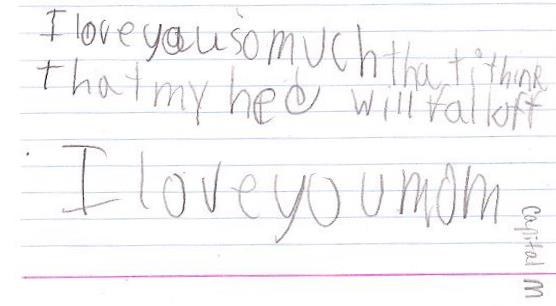 I love you so much that i think
that my hed will fall off
I love you mom
capital M